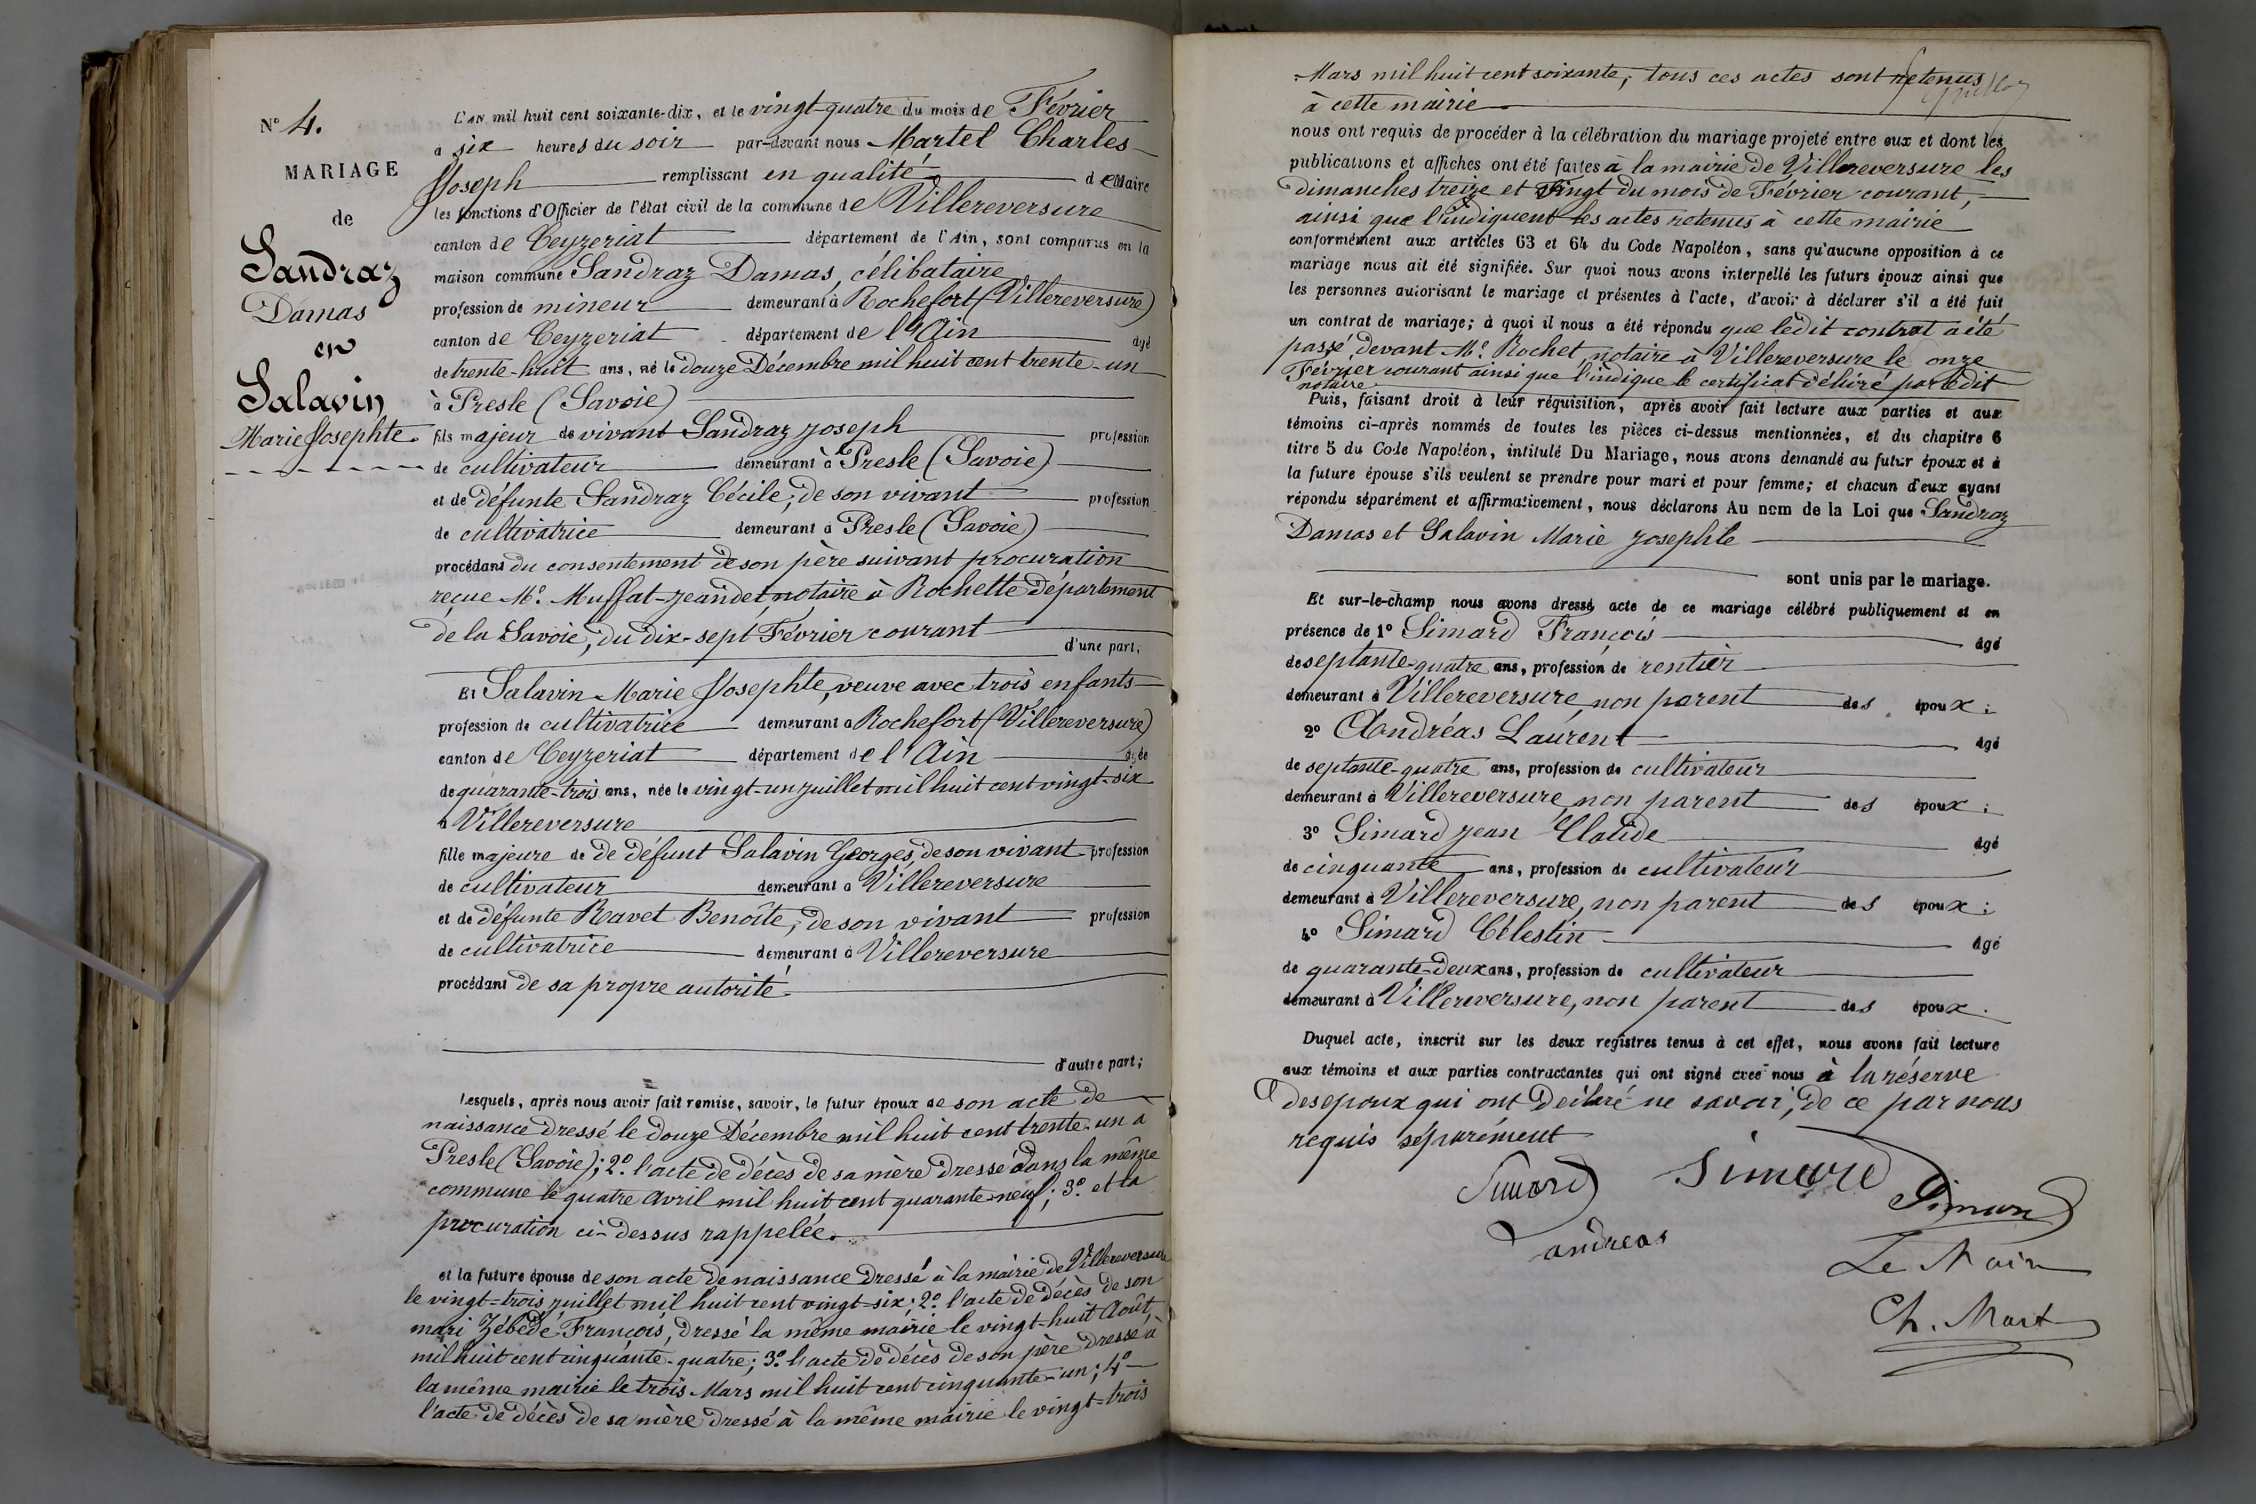 N° 4.
MARIAGE
de
Sandraz
Damas
et
Salavin
Marie Josephte.
L'an mil huit cent soixante-dix, et le vingt-quatre du mois de Février
a six heures du soir par-devant nous Martel Charles
Joseph remplissant en qualité de Maire
les fonctions d'Officier de l'état civil de la commune de Villereversure
canton de Ceyzeriat département de l'Ain, sont comparus en la
maison commune Sandraz Damas, célibataire
profession de mineur demeurant à Rochefort (Villereversure)
canton de Ceyzeriat département de l'Ain âgé
de trente-huit ans, né le douze Décembre mil huit cent trente-un
à Presle (Savoie)
fils majeur de vivant Sandraz Joseph profession
de cultivateur demeurant à Presle (Savoie)
et de défunte Sandraz Cécile, de son vivant profession
de cultivatrice demeurant à Presle (Savoie)
procédant du consentement de son père suivant procuration
reçue Me. Muffat-Jeandet notaire à Rochette Département
de la Savoie, du dix-sept Février courant
d'une part;
Et Salavin Marie Josephte, veuve avec trois enfants
profession de cultivatrice demeurant à Rochefort (Villereversure)
canton de Ceyzeriat département de l'Ain âgée
de quarante-trois ans, née le vingt-un juillet mil huit cent vingt-six
à Villereversure
fille majeure de de défunt Salavin Georges, de son vivant profession
de cultivateur demeurant à Villereversure
et de défunte Ravet Benoîte, de son vivant profession
de cultivatrice demeurant à Villereversure
procédant de sa propre autorité
d'autre part;
Lesquels, après nous avoir fait remise, savoir, le futur époux de son acte de
naissance dressé le douze Décembre mil huit cent trente-un à
Presle (Savoie); 2°. l'acte de décès de sa mère dressé dans la même
commune le quatre Avril mil huit cent quarante-neuf; 3°. et la
procuration ci-dessus rappelée.
et la future épouse de son acte de naissance dressé à la mairie de Villereversure
le vingt-trois juillet mil huit cent vingt-six; 2°. l'acte de décès de son
mari Zébédé François, dressé la même mairie le vingt-huit Août,
mil huit cent cinquante-quatre; 3°. l'acte de décès de son père dressé à
la même mairie le trois Mars mil huit cent cinquante-un; 4°
l'acte de décès de sa mère dressé à la même mairie le vingt-trois
Mars mil huit cent soixante; tous ces actes sont retenus
à cette mairie
nous ont requis de procéder à la célébration du mariage projeté entre eux et dont les
publications et affiches ont été faites à la mairie de Villereversure les
dimanches treize et vingt du mois de Février courant,
ainsi que l'indiquent les actes retenus à cette mairie
conformément aux articles 63 et 64 du Code Napoléon, sans qu'aucune opposition à ce
mariage nous ait été signifiée. Sur quoi nous avons interpellé les futurs époux ainsi que
les personnes autorisant le mariage et présentes à l'acte, d'avoir à déclarer s'il a été fait
un contrat de mariage; à quoi il nous a été répondu que ledit contrat a été
passé devant Me. Rochet, notaire à Villereversure le onze
Février courant ainsi que l'indique le certificat délivré par ledit
notaire
Puis, faisant droit à leur réquisition, après avoir fait lecture aux parties et aux
témoins ci-après nommés de toutes les pièces ci-dessus mentionnées, et du chapitre 6
titre 5 du Code Napoléon, intitulé Du Mariage, nous avons demandé au futur époux et à
la future épouse s'ils veulent se prendre pour mari et pour femme; et chacun d'eux ayant
répondu séparément et affirmativement, nous déclarons Au nom de la Loi que Sandraz
Damas et Salavin Marie Josephte
sont unis par le mariage.
Et sur-le-champ nous avons dressé acte de ce mariage célébré publiquement et en
présence de 1° Simard François âgé
de septante-quatre ans, profession de rentier
demeurant à Villereversure, non parent des époux;
2° Andréas Laurent âgé
de septante-quatre ans, profession de cultivateur
demeurant à Villereversure non parent des époux;
3° Simard Jean Claude âgé
de cinquante ans, profession de cultivateur
demeurant à Villereversure, non parent des époux;
4° Simard Célestin âgé
de quarante-deux ans, profession de cultivateur
demeurant à Villereversure, non parent des époux.
Duquel acte, inscrit sur les deux registres tenus à cet effet, nous avons fait lecture
aux témoins et aux parties contractantes qui ont signé avec nous à la réserve
des époux qui ont déclaré ne savoir, de ce par nous
requis séparément
Simard Simard Simard
andreas
Le Maire
Ch. Mart